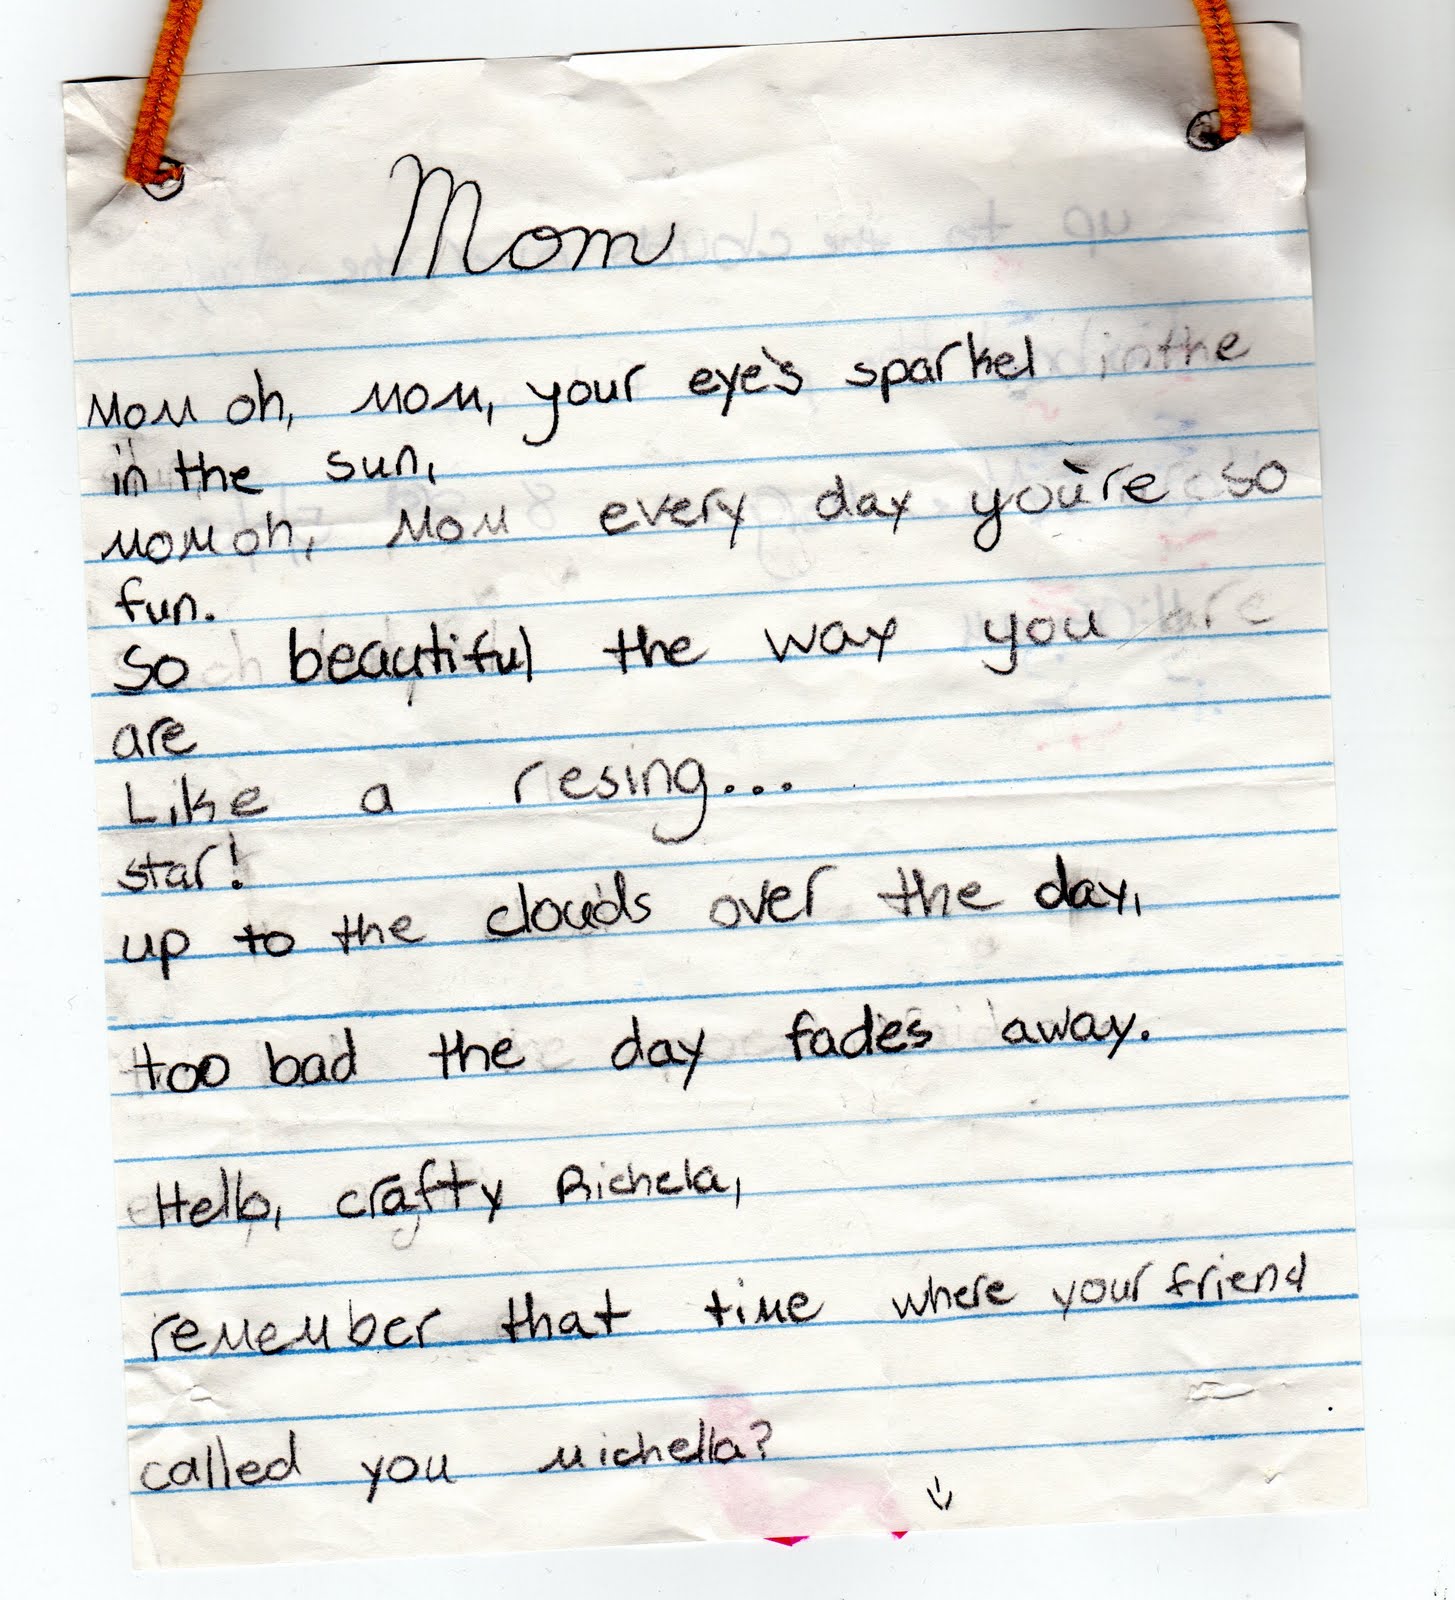 Mom
Mom oh, Mom, your eye's sparkel in the
in the sun,
Mom oh, Mom every day you're so
fun.
So beautiful the way you are
are
Like a resing...
star!
up to the clouds over the day,
too bad the day fades away.
Hello, crafty Richela,
remember that time where your friend
called you Michella?